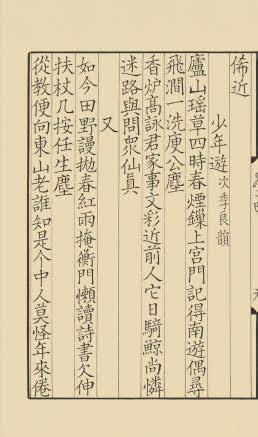 俙近
少年遊 次季良韻
廬山瑶草四時春煙鏁上宮門記得南遊偶尋
飛澗一洗庾公塵
香炉髙詠君家事文彩近前人它日騎鯨尚憐
迷路與問衆仙眞
又
如今田野謾抛春紅雨掩衡門懶讀詩書欠伸
扶杖几按任生塵
從教便向東山老誰知是个中人莫怪年來倦